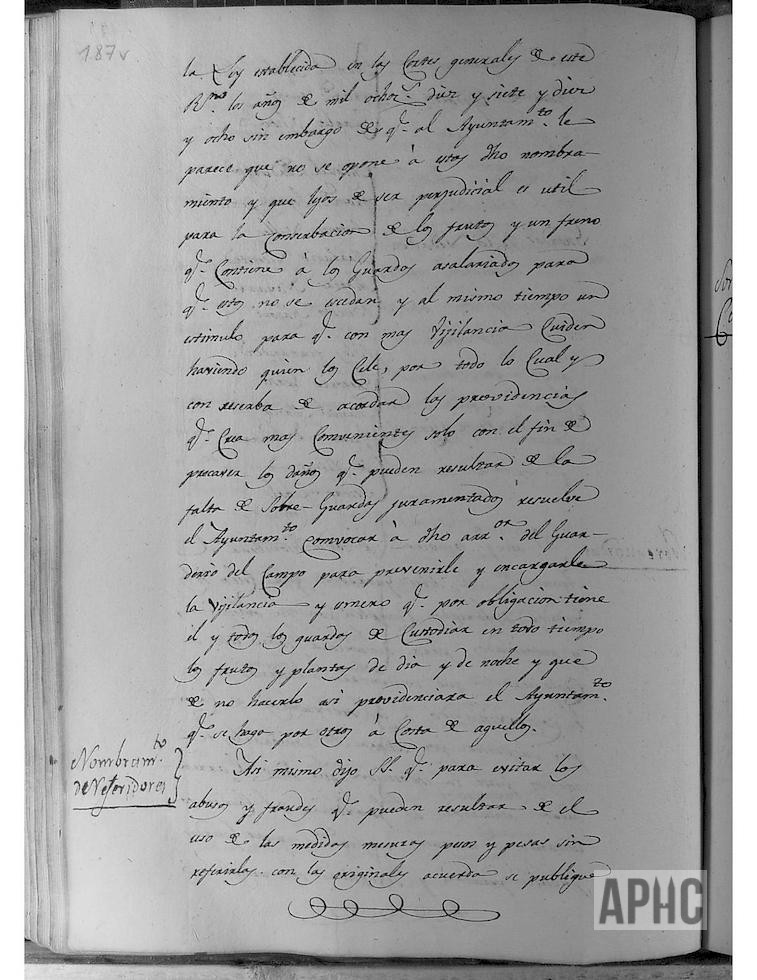 187v
la Ley establecida en las Cortes generales de este
Rno. los años de mil ochocs. diez y siete y diez
y ocho sin embargo de qe. al Ayuntamto. le
parece que no se opone à estas dho nombra-
miento y que lejos de ser perjudicial es util
para la Conserbacion de los frutos y un freno
qe. Contiene à los Guardas asalariados para
qe. estos no se escedan y al mismo tiempo un
estimulo para qe. con mas Vijilancia Cuiden
haviendo quien los Cele, por todo lo Cual y
con reserba de acordar las providencias
qe. Crea mas Combenientes solo con el fin de
precaver los daños qe. pueden resultar de la
falta de Sobre-Guardas juramentados resuelve
el Ayuntamto. Comvocar à dho arror. del Guar-
derio del Campo para prevenirle y encargarle
la Vijilancia y esmero qe. por obligacion tiene
él y todos los guardas de Custodiar en todo tiempo
los frutos y plantas de dia y de noche y que
de no hacerlo asi providenciara el Ayuntamto.
qe. se haga por otros à Costa de aquellos.
Nombramto.
de Referidores
Asi mismo dijo SS. qe. para evitar los
abusos y fraudes qe. pueden resultar de el
uso de las medidas mesuras pesos y pesas sin
referirlas con las originales acuerda se publique
APHC